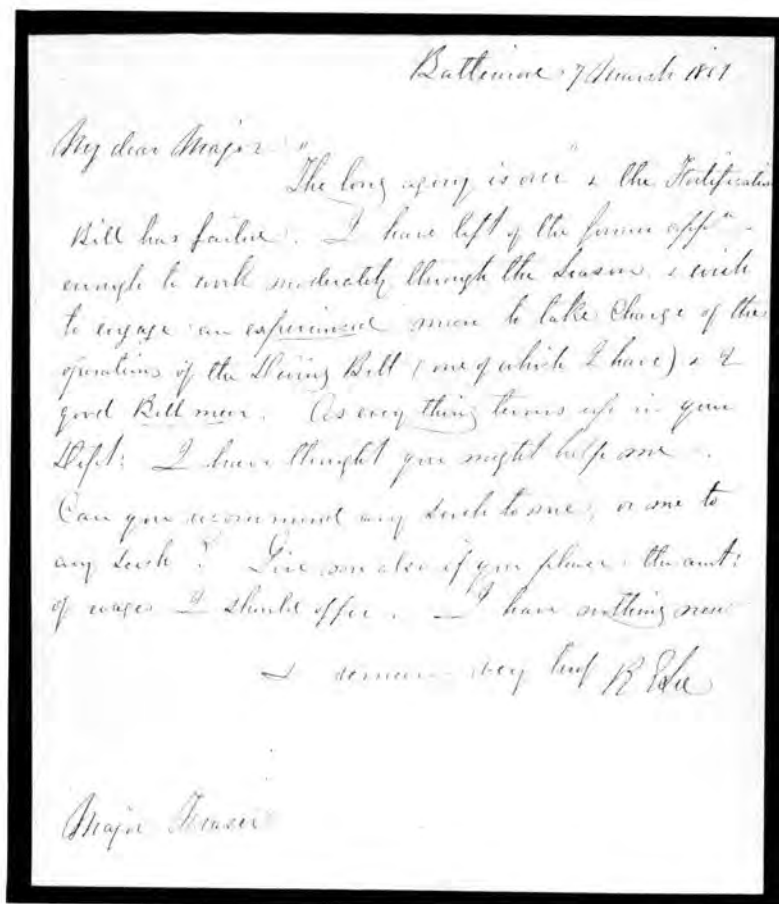 Baltimore 7 March 1851
My dear Major
"The long agony is over" & the Fortification
Bill has failed. I have left of the former app.n
enough to work moderately through the Season, & wish
to engage an experienced man to take Charge of the
operations of the Diving Bell (one of which I have) & 2
good Bell men. As every thing turns up in your
Dept: I have thought you might help me.
Can you recommend any such to me, or me to
any such? Give me also if you please the amt:
of wages I should offer. I have nothing new
& remain very truly R E Lee
Major Fraser